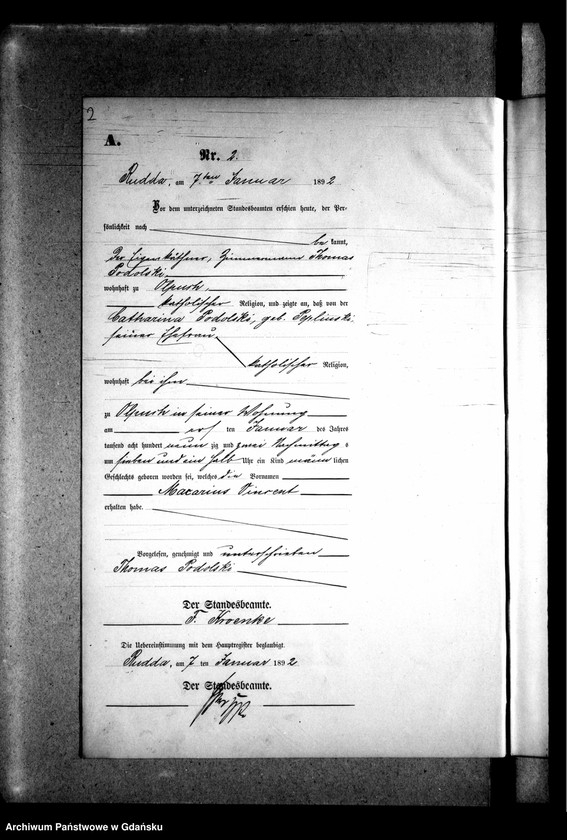 2
A.
Nr. 2.
Rudda, am 7ten Januar 1892
Vor dem unterzeichneten Standesbeamten erschien heute, der Per-
sönlichkeit nach
be kannt,
der Eigenkäthner, Zimmermann Thomas
Podolski
wohnhaft zu Olpuch,
katholischer Religion, und zeigte an, daß von der
Catharina Podolski, geb. Peplinski,
seiner Ehefrau,
katholischer Religion,
wohnhaft bei ihm
zu Olpuch in seiner Wohnung
am ten Januar des Jahres
tausend acht hundert neun zig und zwei Nachmittag s
um sieben und ein halb Uhr ein Kind männ lichen
Geschlechts geboren worden sei, welches die Vornamen
Macarius Vincent
erhalten habe.
Vorgelesen, genehmigt und unterschrieben
Thomas Podolski
Der Standesbeamte.
F. Kroenke
Die Uebereinstimmung mit dem Hauptregister beglaubigt.
Rudda, am 7 ten Januar 1892
Der Standesbeamte.
Archiwum Państwowe w Gdańsku